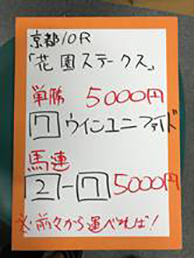 京都10R
「花園ステークス」
単勝 5000円
7 ウインユニファイド
馬連
2-7 5000円
※前々から運べれば!